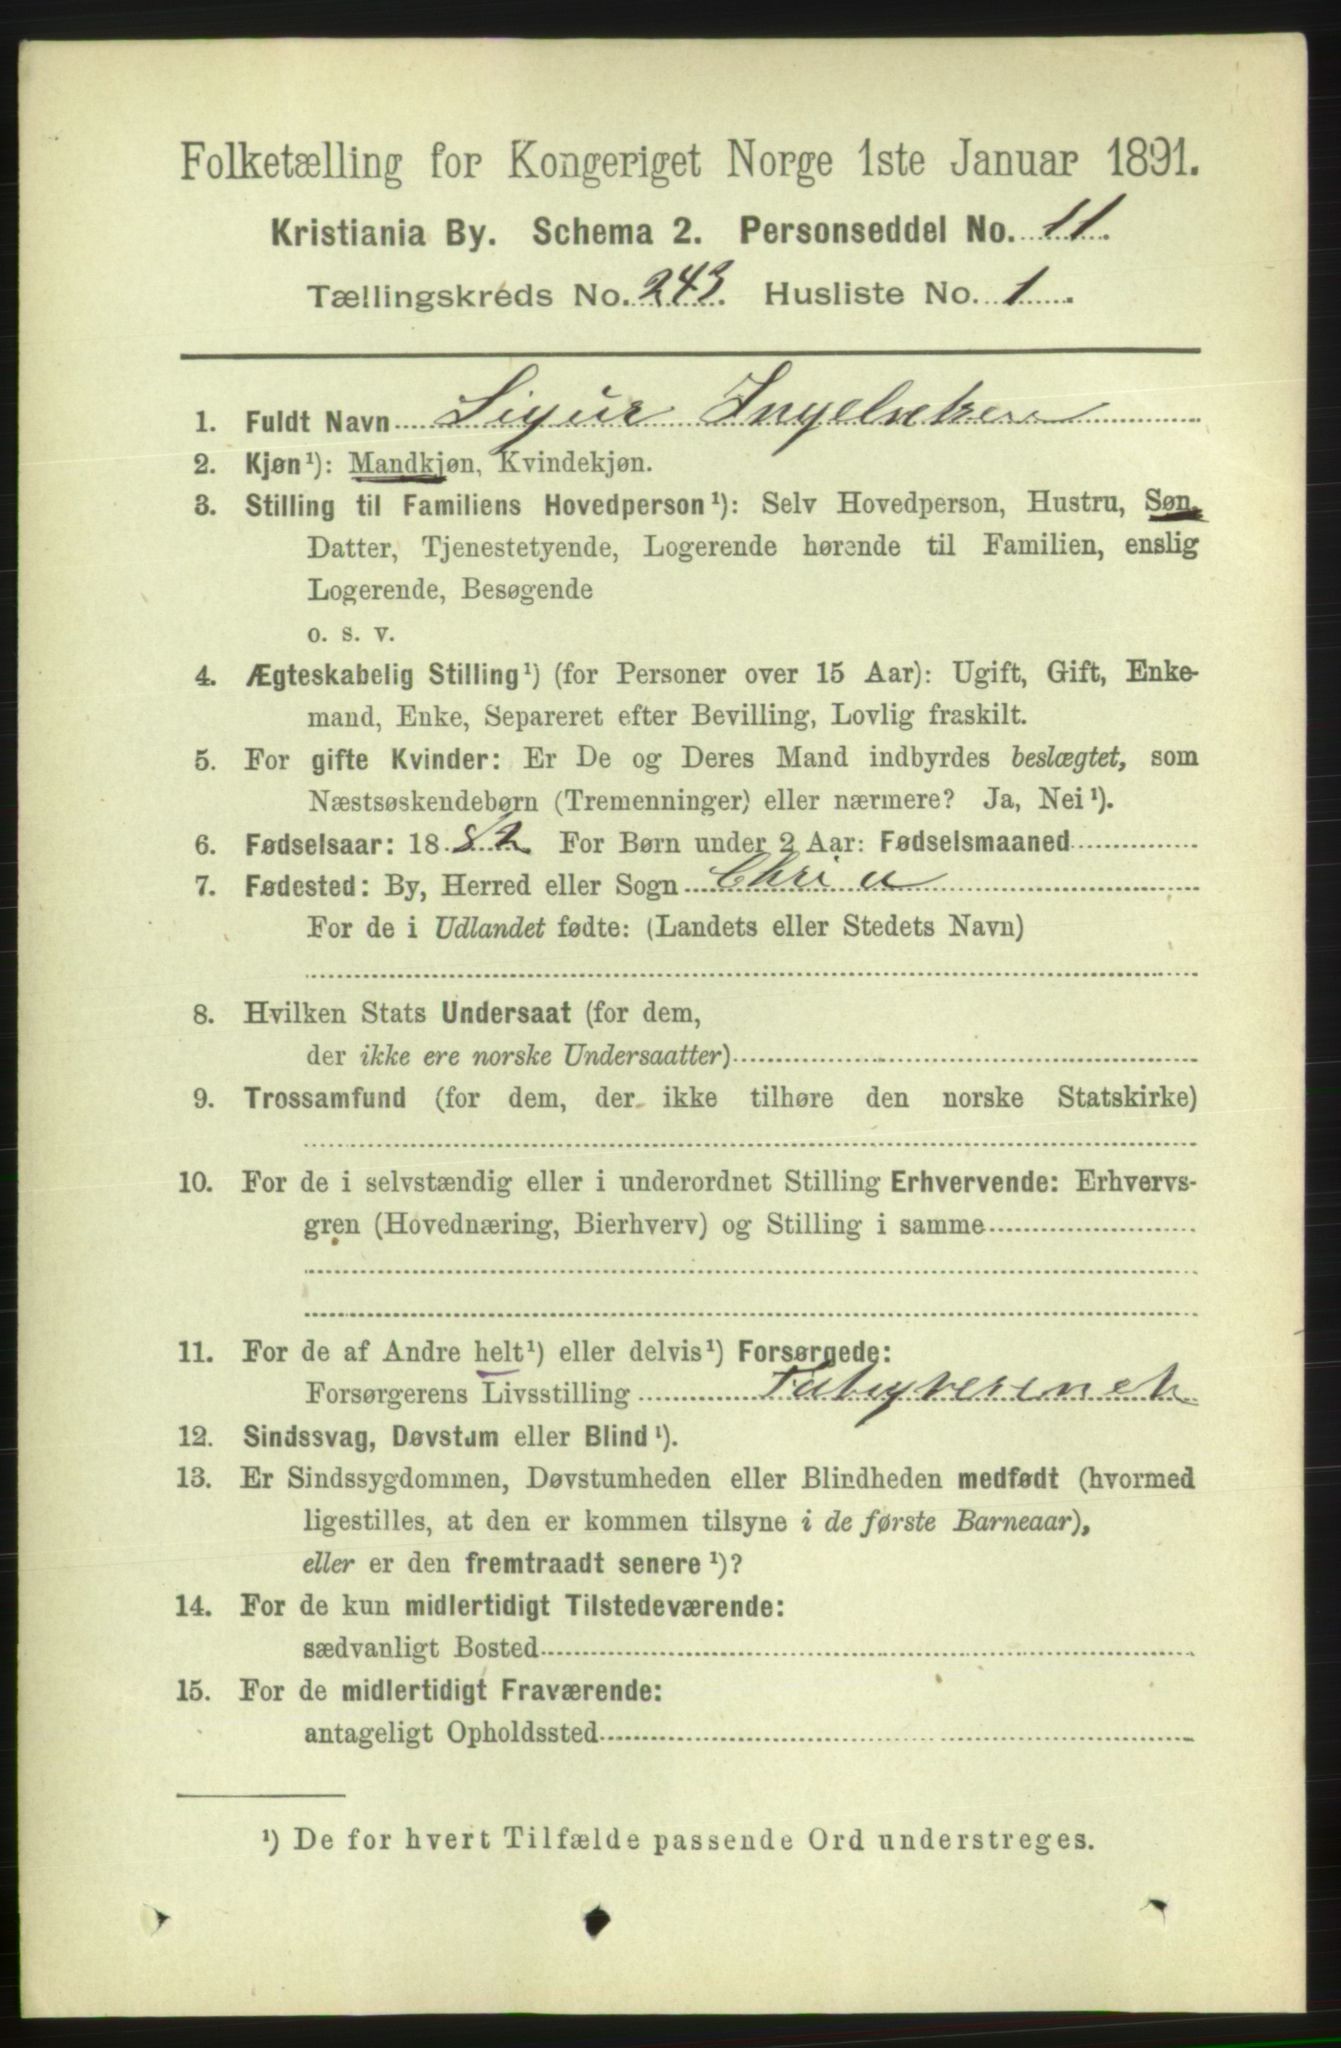 Folketælling for Kongeriget Norge 1ste Januar 1891.
Kristiania By. Schema 2. Personseddel No. 11.
Tællingskreds No. 243. Husliste No. 1.
1. Fuldt Navn Sigur
2. Kjøn¹): Mandkjøn, Kvindekjøn.
3. Stilling til Familiens Hovedperson¹): Selv Hovedperson, Hustru, Søn,
Datter, Tjenestetyende, Logerende hørende til Familien, enslig
Logerende, Besøgende
o. s. v.
4. Ægteskabelig Stilling¹) (for Personer over 15 Aar): Ugift, Gift, Enke-
mand, Enke, Separeret efter Bevilling, Lovlig fraskilt.
5. For gifte Kvinder: Er De og Deres Mand indbyrdes beslægtet, som
Næstsøskendebørn (Tremenninger) eller nærmere? Ja, Nei¹).
6. Fødselsaar: 1882 For Børn under 2 Aar: Fødselsmaaned
7. Fødested: By, Herred eller Sogn Chri a
For de i Udlandet fødte: (Landets eller Stedets Navn)
8. Hvilken Stats Undersaat (for dem,
der ikke ere norske Undersaatter)
9. Trossamfund (for dem, der ikke tilhøre den norske Statskirke)
10. For de i selvstændig eller i underordnet Stilling Erhvervende: Erhvervs-
gren (Hovednæring, Bierhverv) og Stilling i samme
11. For de af Andre helt¹) eller delvis¹) Forsørgede:
Forsørgerens Livsstilling
12. Sindssvag, Døvstum eller Blind¹).
13. Er Sindssygdommen, Døvstumheden eller Blindheden medfødt (hvormed
ligestilles, at den er kommen tilsyne i de første Barneaar),
eller er den fremtraadt senere¹)?
14. For de kun midlertidigt Tilstedeværende:
sædvanligt Bosted
15. For de midlertidigt Fraværende:
antageligt Opholdssted
¹) De for hvert Tilfælde passende Ord understreges.